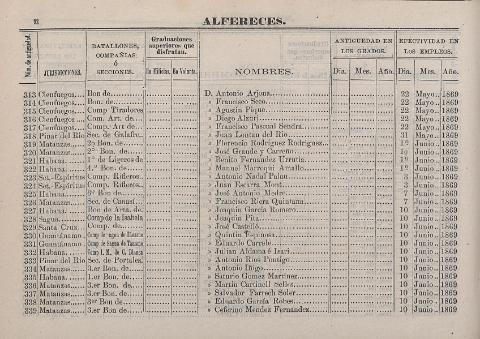 22 ALFERECES.
Núm. de antigüedad. JURISDICCIONES. BATALLONES, COMPAÑIAS ó SECCIONES. Graduaciones superiores que disfrutan. En Ejército. En Volunts. NOMBRES. ANTIGUEDAD EN LOS GRADOS. Dia. Mes. Año. EFECTIVIDAD EN LOS EMPLEOS. Dia. Mes. Año.
313 Cienfuegos Bon de D. Antonio Arjona 22 Mayo 1869
314 Cienfuegos Bon. de » Francisco Seco 22 Mayo 1869
315 Cienfuegos Comp Tiradores » Agustin Pique 22 Mayo 1869
316 Cienfuegos Com. Art. de » Diego Alzorí 22 Mayo 1869
317 Cienfuegos Comp. Art de » Francisco Pascual Sendra 22 Mayo 1869
318 Pinar del Rio Sec. de Galafre » Juan Lantan del Rio 31 Mayo 1869
319 Matanzas 2º Bon. de » Florencio Rodriguez Rodriguez 1º Junio 1869
320 Matanzas 2º Bon. de » José Grande y Carreño 1º Junio 1869
321 Habana 1º de Ligeros de » Benito Fernandez Urrutia 1º Junio 1869
322 Habana 4.º Bon. de » Manuel Marroqui Amallo 1º Junio 1869
323 Sti.-Espíritus Comp. Rifleros » Antonio Nadal Palau 3 Junio 1869
324 Sti.-Espíritus Comp. Rifleros » Juan Escurra Mont 3 Junio 1869
325 Habana 6º Bon de » José Antonio Meder 7 Junio 1869
326 Matanzas Sec. de Canasí » Francisco Riera Quintana 7 Junio 1869
327 Habana Bon de Arta. » Joaquin Garcia Romero 10 Junio 1869
328 Sagua » Joaquin Pita 10 Junio 1869
329 Santa Cruz Comp. de » José Castelló 10 Junio 1869
330 Guantánamo » Quintin Espinosa 10 Junio 1869
331 Guantánamo » Eduardo Carrebé 10 Junio 1869
332 Habana » Julian Aldasea é Isari 10 Junio 1869
333 Pinar del Rio Sec. de Portales » Antonio Rios Pontigo 10 Junio 1869
334 Matanzas 1.er Bon. de » Antonio Iñigo 10 Junio 1869
335 Habana 3.er Bon. de » Saturio Gomez Martinez 10 Junio 1869
336 Matanzas 1.er Bon. de » Martin Cartinell Selles 10 Junio 1869
337 Matanzas 1.er Bon. de » Salvador Farrech Soler 10 Junio 1869
338 Matanzas 3er Bon de » Eduardo García Robes 10 Junio 1869
339 Matanzas 1.er Bon. de » Ceferino Mendez Fernandez 10 Junio 1869